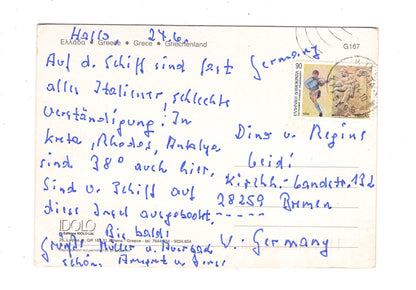 Hallo, 24.6.
Ελλάδα • Greece • Grèce • Griechenland
G167
Auf d. Schiff sind fast
alles Italiener, schlechte
Verständigung! In
Kreta, Rhodos, Antalya
sind 38° auch hier.
Sind v. Schiff auf
diese Insel ausgebootet.
Bis bald!
Grüße Müller u.
schön
Germany
90
Dina u. Regina
Kirchh.-Landstr. 132
28259 Bremen
V. Germany
IDOLO